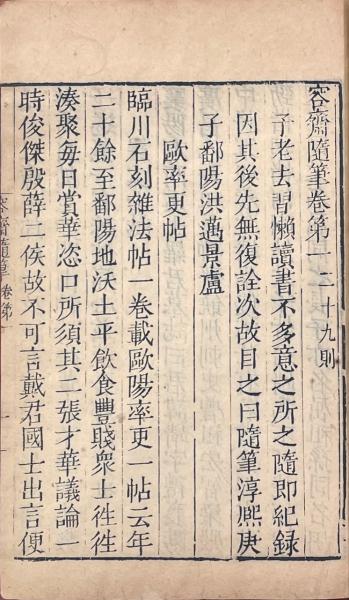 容齋隨筆卷第一二十九則
予老去習懶讀書不多意之所之隨即紀錄
因其後先無復詮次故目之曰隨筆淳熙庚
子鄱陽洪邁景盧
歐率更帖
臨川石刻雜法帖一卷載歐陽率更一帖云年
二十餘至鄱陽地沃土平飲食豐賤衆士徃徃
湊聚每日賞華恣口所須其二張才華議論一
時俊傑殷薛二侯故不可言戴君國士出言便
容齋隨筆 卷第一